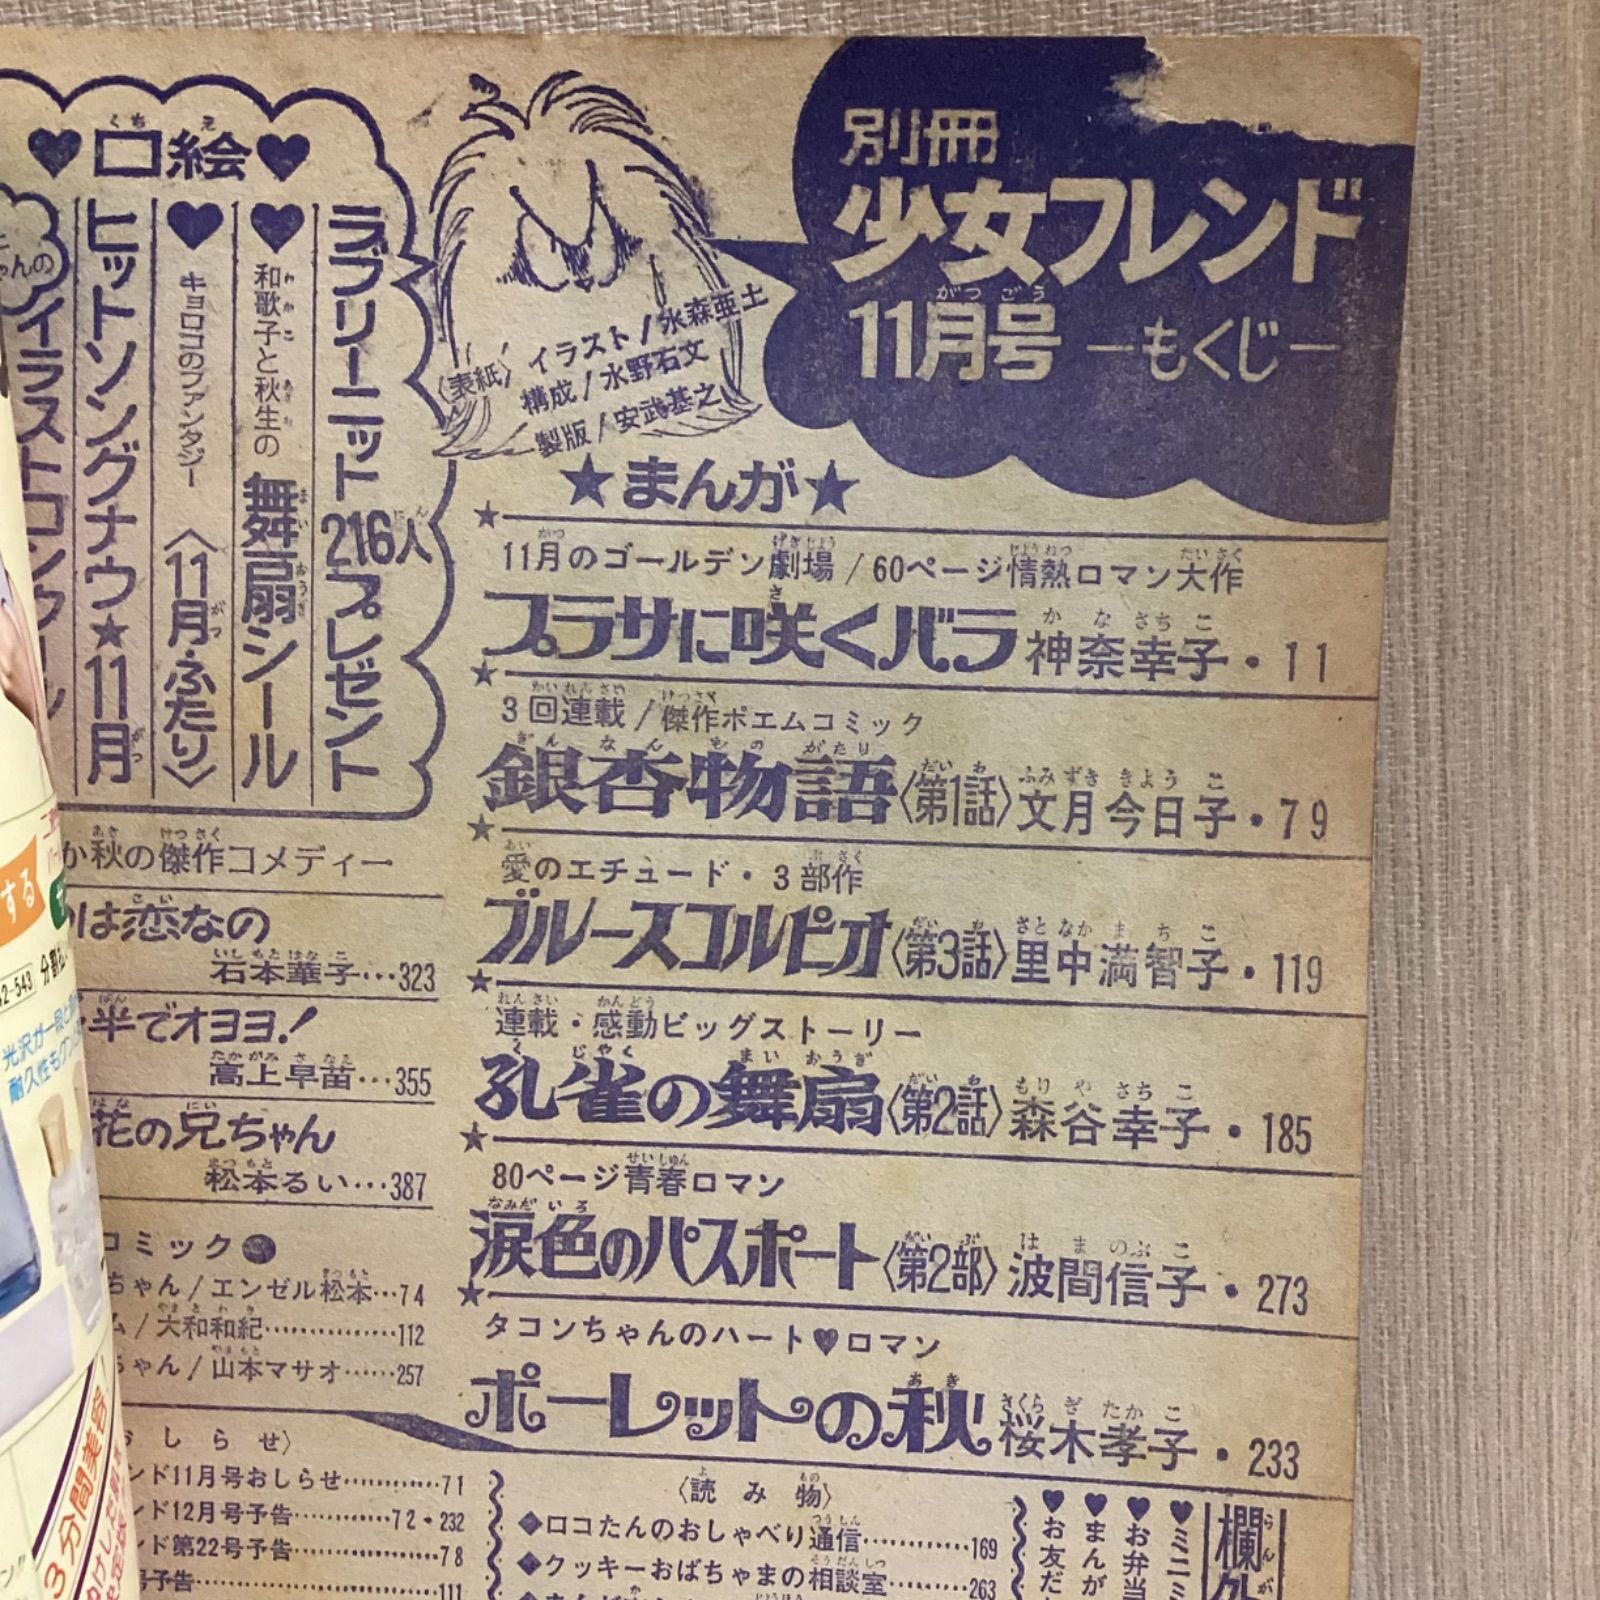 別冊
少女フレンド
11月号 ーもくじー
〈表紙〉イラスト/水森亜土
構成/水野石文
製版/安武基之
★まんが★
11月のゴールデン劇場/60ページ情熱ロマン大作
プラサに咲くバラ 神奈幸子・11
3回連載/傑作ポエムコミック
銀杏物語〈第1話〉文月今日子・79
愛のエチュード・3部作
ブルースコルピオ〈第3話〉里中満智子・119
連載・感動ビッグストーリー
孔雀の舞扇〈第2話〉森谷幸子・185
80ページ青春ロマン
涙色のパスポート〈第2部〉波間信子・273
タコンちゃんのハート♥ロマン
ポーレットの秋 桜木孝子・233
♥口絵♥
ラブリーニット216人プレゼント
♥和歌子と秋生の舞扇シール
♥キョロコのファンタジー〈11月・ふたり〉
ヒットソングナウ★11月
ゃんのイラストコンクール
か秋の傑作コメディー
は恋なの
石本華子…323
半でオヨヨ!
高上早苗…355
花の兄ちゃん
松本るい…387
コミック
ちゃん/エンゼル松本…74
ム/大和和紀……112
ちゃん/山本マサオ……257
おしらせ〉
ンド11月号おしらせ……71
ンド12月号予告……72・232
ンド第22号予告……78
号予告……111
〈読み物〉
◆ロコたんのおしゃべり通信……169
◆クッキーおばちゃまの相談室……263
欄外
♥ミニミ
♥お弁当
♥まんが
♥お友だ
する
2-543
分割払
光沢が一段と
耐久性も
3分間美容